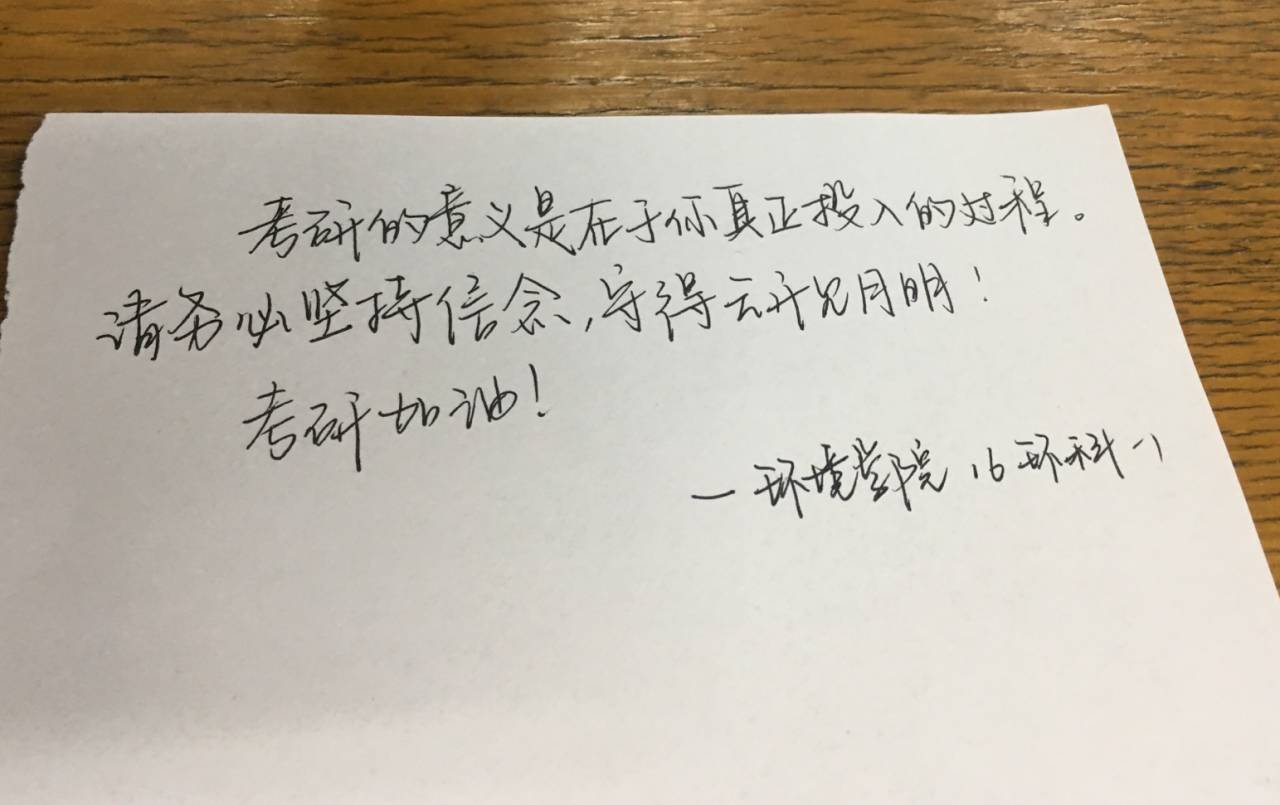 考研的意义是在于你真正投入的过程。
请务必坚持信念,守得云开见月明!
考研加油!
—环境学院 16环科一